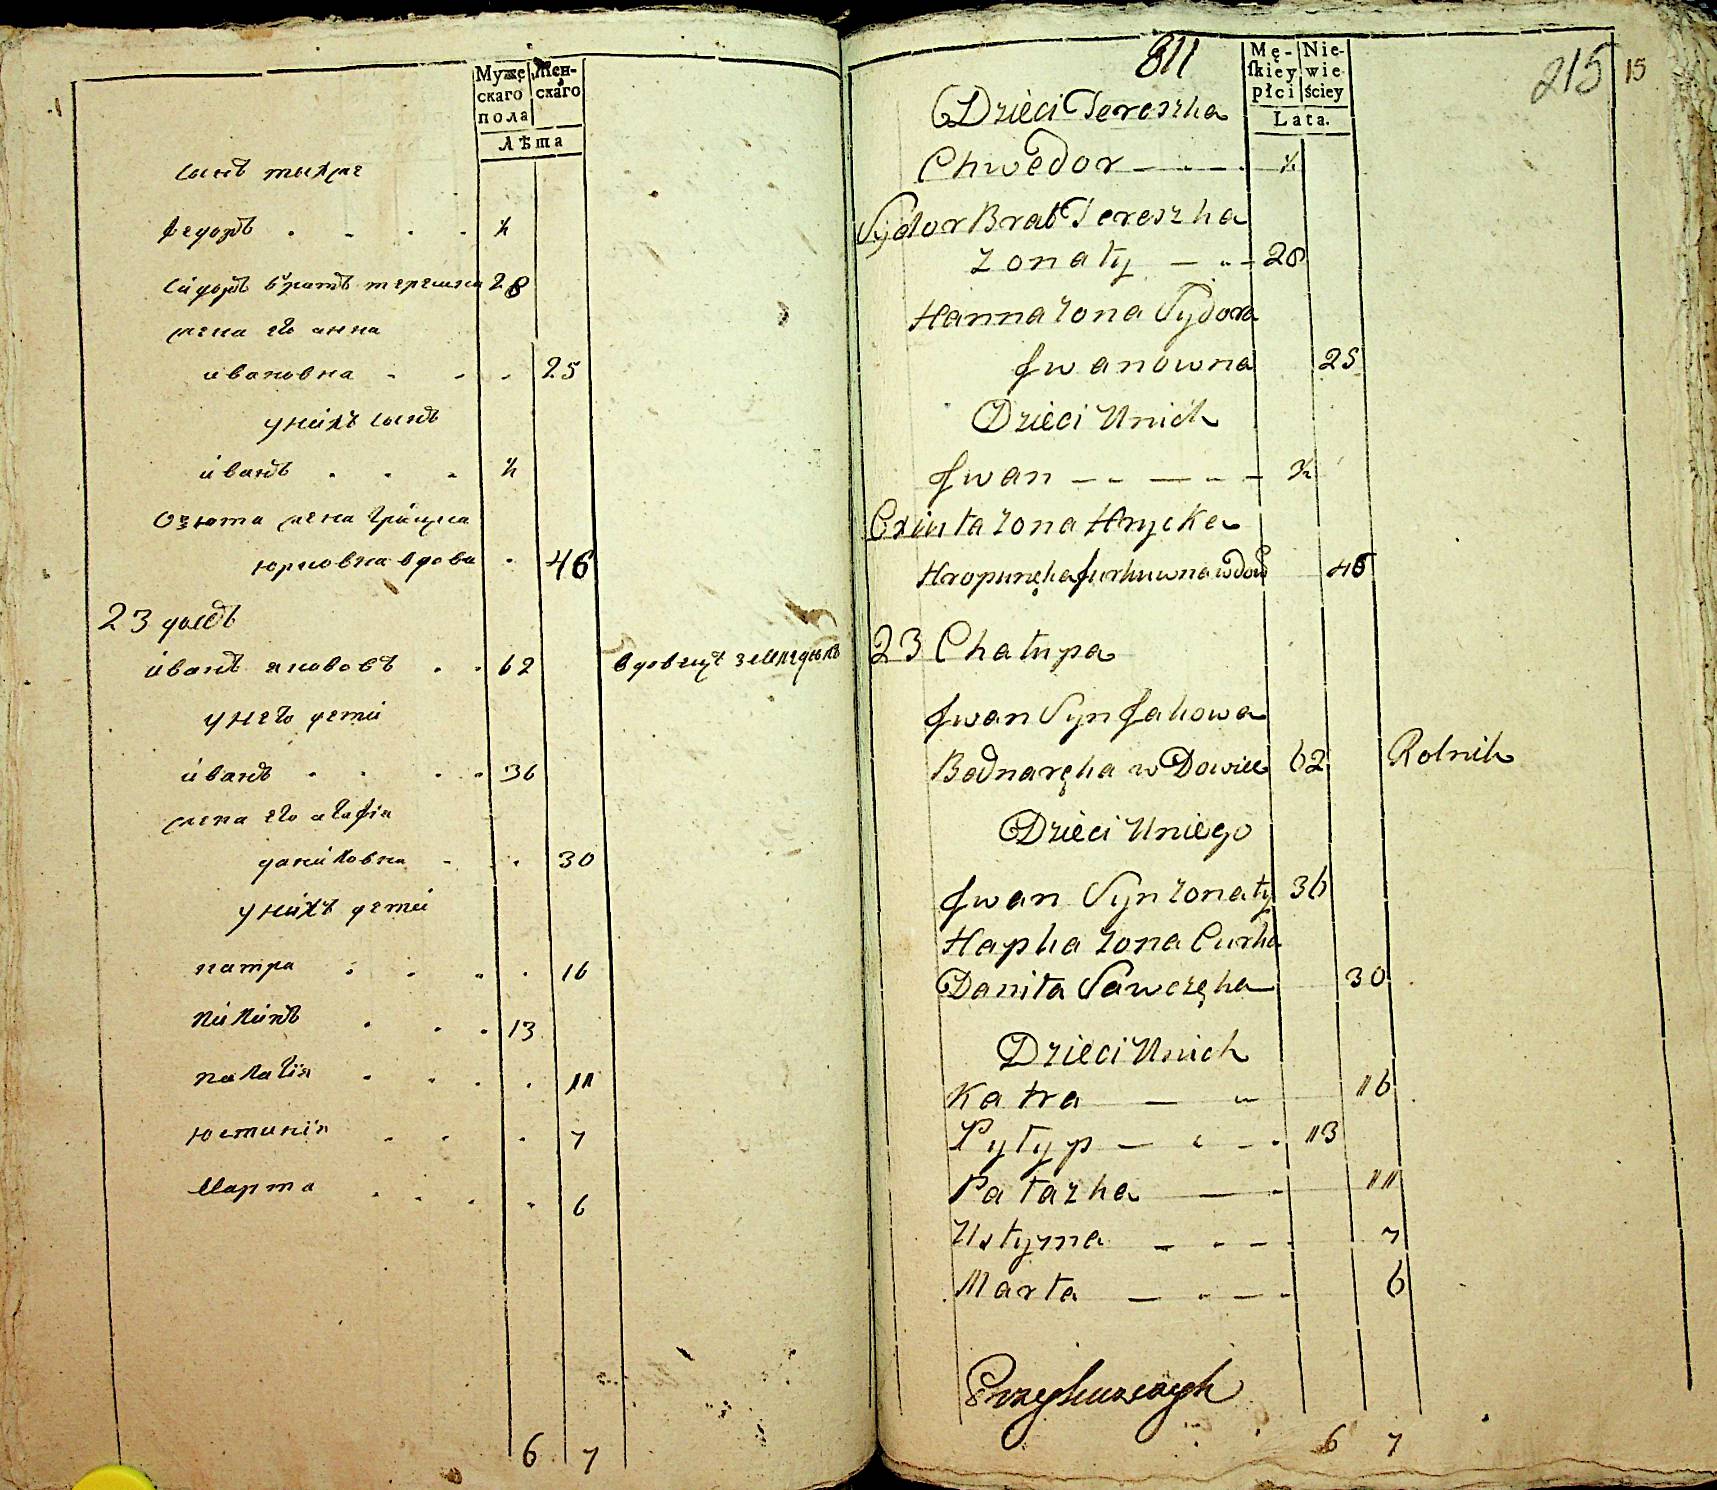 Муже
скаго
пола
Жен-
скаго
Лѣта
сынъ тыхже
федоръ . . . . ½
сидоръ братъ терешка 28
жена его анна
ивановна . . . 25
унихъ сынъ
иванъ . . . ½
жена грицка
юрковна вдова . 46
23 домъ
иванъ якововъ . . 62 вдовецъ
унего дети
иванъ . . . . 36
жена его агафія
даниловна . . . 30
унихъ дети
катра . . . . 16
пилипъ . . . 13
палагія . . . . 11
юстинія . . . 7
Марта . . . . . 6
6 7
811
215
15
Mę-
skiey
płci
Nie-
wie
ściey
Lata.
Dzieci Tereszka
Chwedor — . — . ½
Sydor Brat Tereszka
zonaty — . . — 28
Hanna zona Sydora
Jwanowna 25
Dzieci Unich
Jwan — . . — . . — ½
zona Hrycka
Jurkuwna wdow 46
23 Chałupa
Jwan Syn Jakowa
Bodnaręka w Dowiec 62 Rolnik
Dzieci Uniego
Jwan Syn zonaty 36
Hapka zona Curka
Daniła Sawczęka 30
Dzieci Unich
Katra — . . 16
Pyłyp — . — . 13
Pałazka — . 11
Ustyna — . — . 7
Marta — . — . 6
6 7